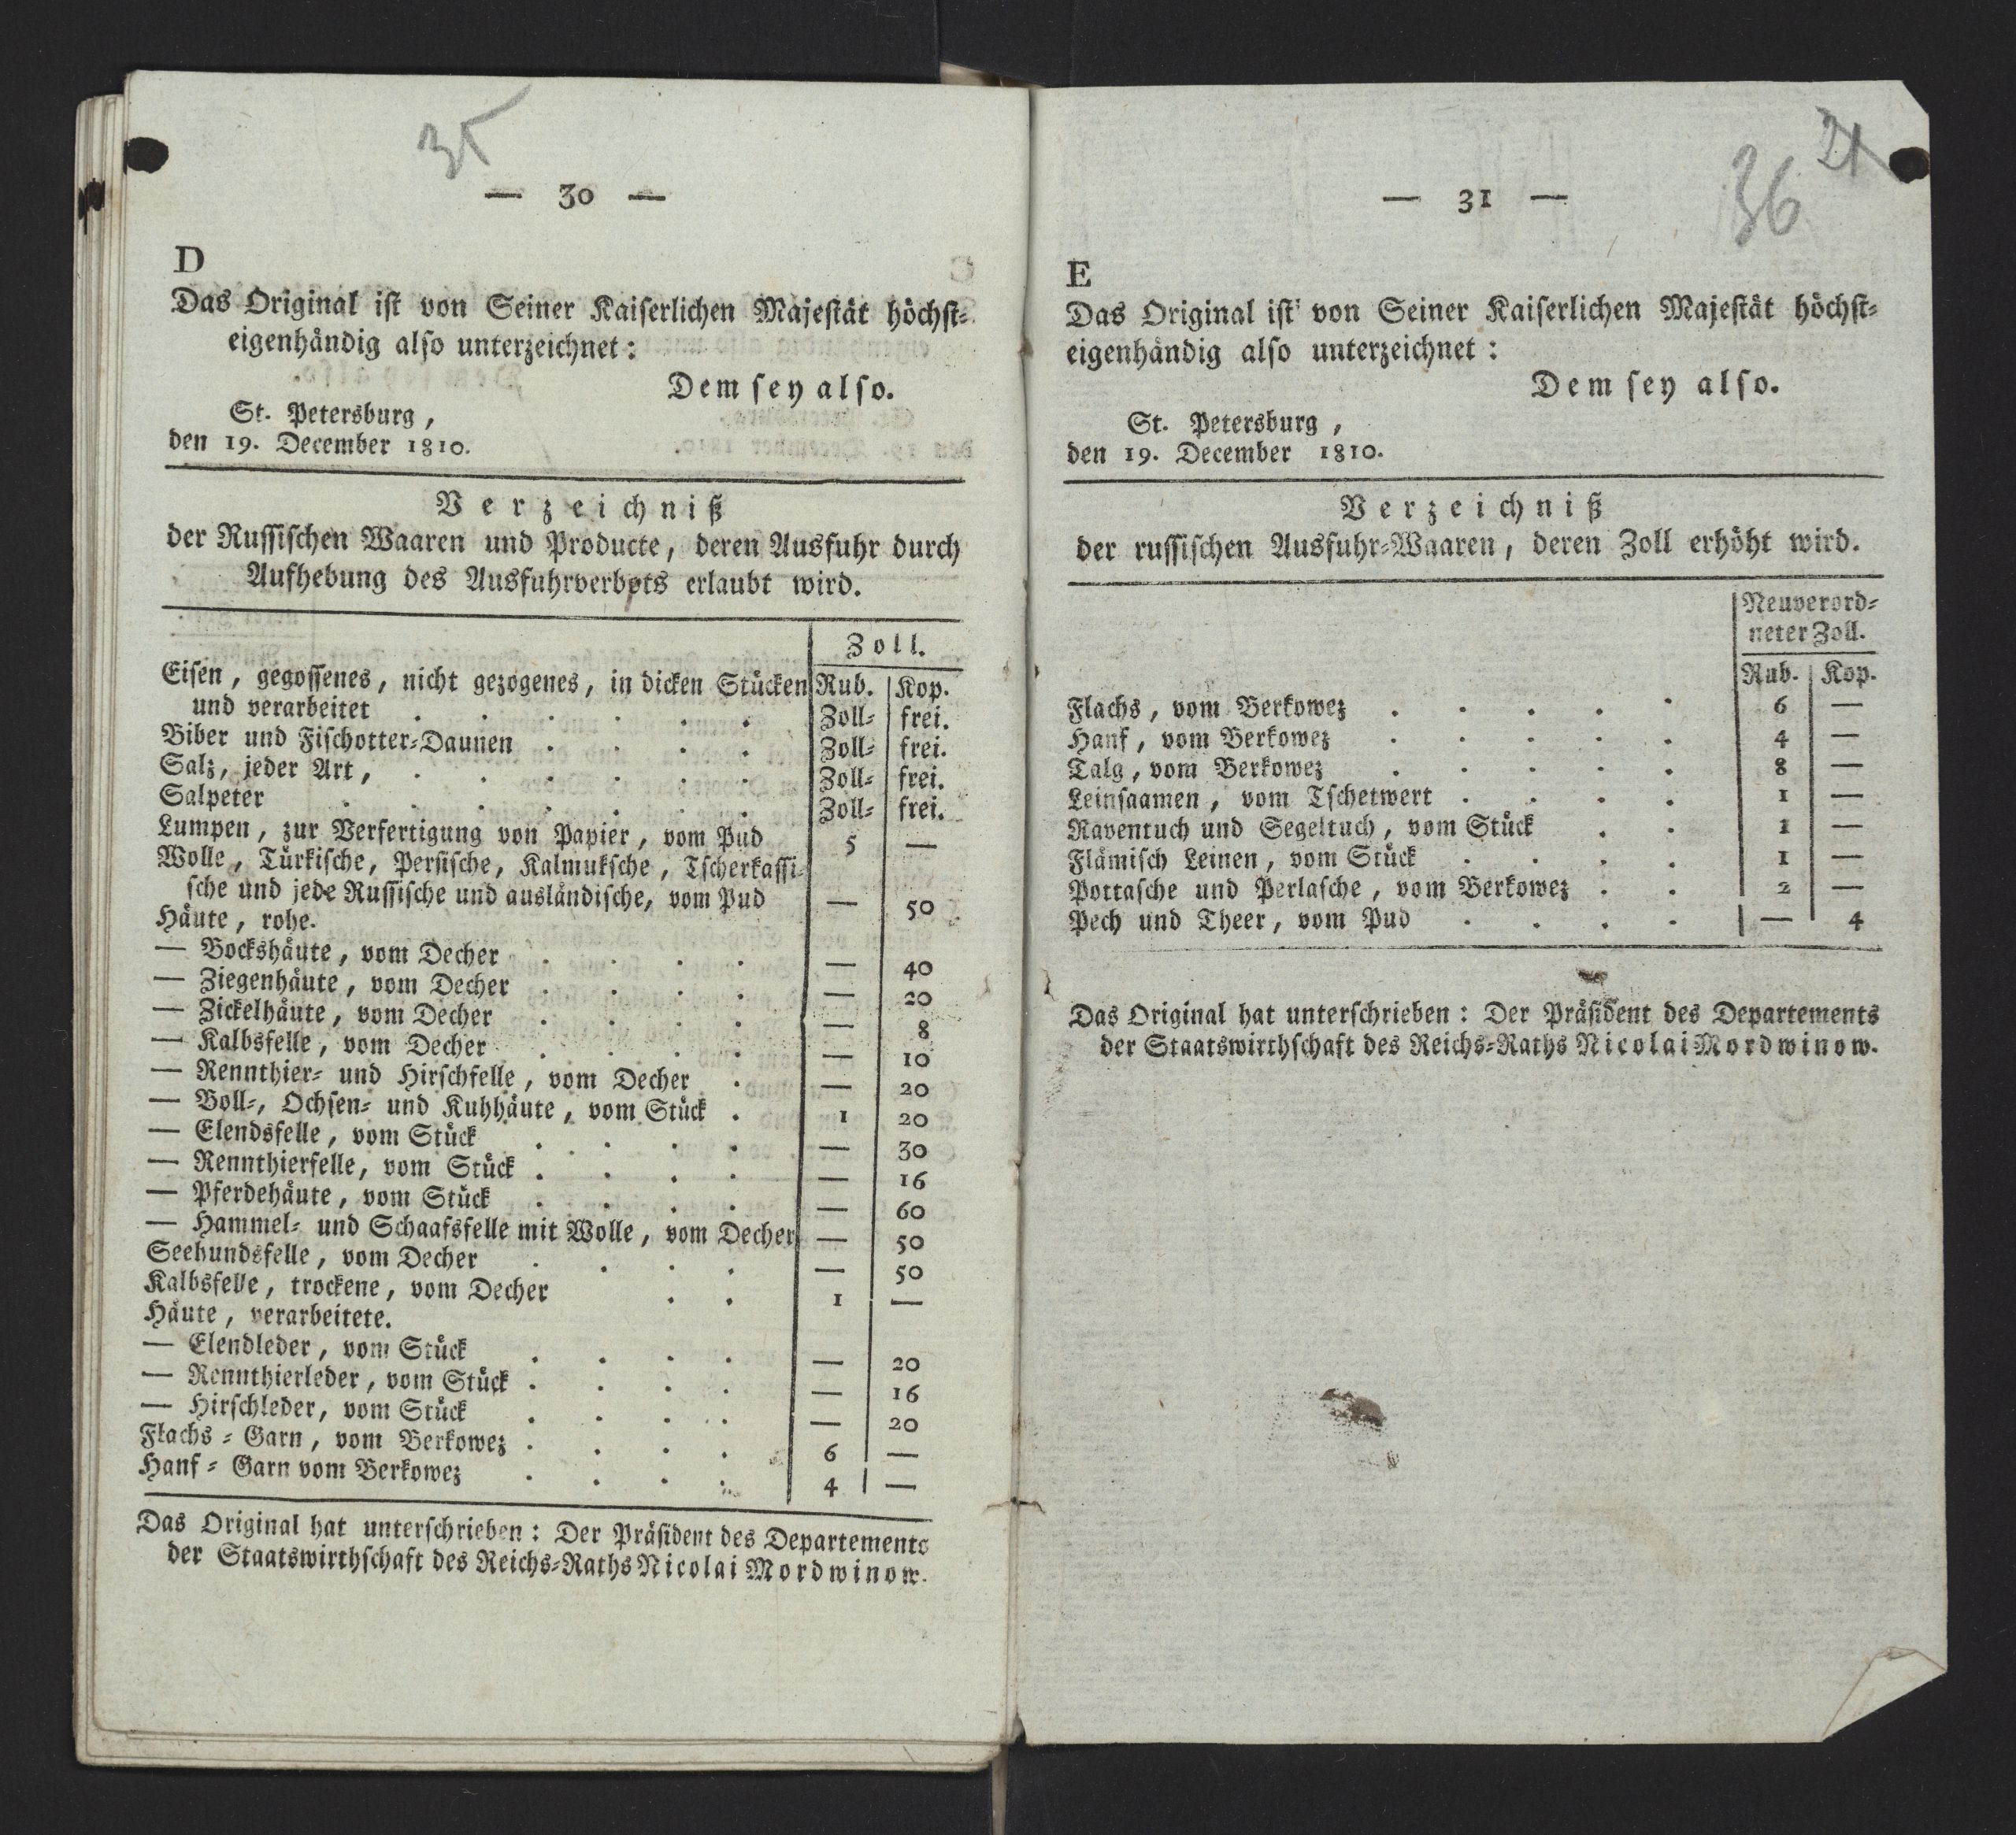 35
— 30 —
D
Das Original ist von Seiner Kaiserlichen Majestät höchst-
eigenhändig also unterzeichnet:
Dem sey also.
St. Petersburg,
den 19. December 1810.
Verzeichniß
der Russischen Waaren und Producte, deren Ausfuhr durch
Aufhebung des Ausfuhrverbots erlaubt wird.
Zoll.
Eisen, gegossenes, nicht gezogenes, in dicken Stücken Rub. Kop.
und verarbeitet . . . . . . Zoll- frei.
Biber und Fischotter-Daunen . . . . Zoll- frei.
Salz, jeder Art, . . . . . . Zoll- frei.
Salpeter . . . . . . . Zoll- frei.
Lumpen, zur Verfertigung von Papier, vom Pud 5 —
Wolle, Türkische, Persische, Kalmuksche, Tscherkassi-
sche und jede Russische und ausländische, vom Pud — 50
Häute, rohe.
— Bockshäute, vom Decher . . . . — 40
— Ziegenhäute, vom Decher . . . . — 20
— Zickelhäute, vom Decher . . . . — 8
— Kalbsfelle, vom Decher . . . . — 10
— Rennthier- und Hirschfelle, vom Decher . — 20
— Boll-, Ochsen- und Kuhhäute, vom Stück . 1 20
— Elendsfelle, vom Stück . . . . — 30
— Rennthierfelle, vom Stück . . . . — 16
— Pferdehäute, vom Stück . . . . — 60
— Hammel- und Schaafsfelle mit Wolle, vom Decher — 50
Seehundsfelle, vom Decher . . . . — 50
Kalbsfelle, trockene, vom Decher . . 1 —
Häute, verarbeitete.
— Elendleder, vom Stück . . . . — 20
— Rennthierleder, vom Stück . . . . — 16
— Hirschleder, vom Stück . . . . — 20
Flachs - Garn, vom Berkowez . . . . 6 —
Hanf - Garn vom Berkowez . . . . 4 —
Das Original hat unterschrieben: Der Präsident des Departements
der Staatswirthschaft des Reichs-Raths Nicolai Mordwinow.
21
36
— 31 —
E
Das Original ist von Seiner Kaiserlichen Majestät höchst-
eigenhändig also unterzeichnet:
Dem sey also.
St. Petersburg,
den 19. December 1810.
Verzeichniß
der russischen Ausfuhr-Waaren, deren Zoll erhöht wird.
Neuverord-
neter Zoll.
Rub. Kop.
Flachs, vom Berkowez . . . . . 6 —
Hanf, vom Berkowez . . . . . 4 —
Talg, vom Berkowez . . . . . 8 —
Leinsaamen, vom Tschetwert . . . . 1 —
Raventuch und Segeltuch, vom Stück . . 1 —
Flämisch Leinen, vom Stück . . . . 1 —
Pottasche und Perlasche, vom Berkowez . . 2 —
Pech und Theer, vom Pud . . . . — 4
Das Original hat unterschrieben: Der Präsident des Departements
der Staatswirthschaft des Reichs-Raths Nicolai Mordwinow.